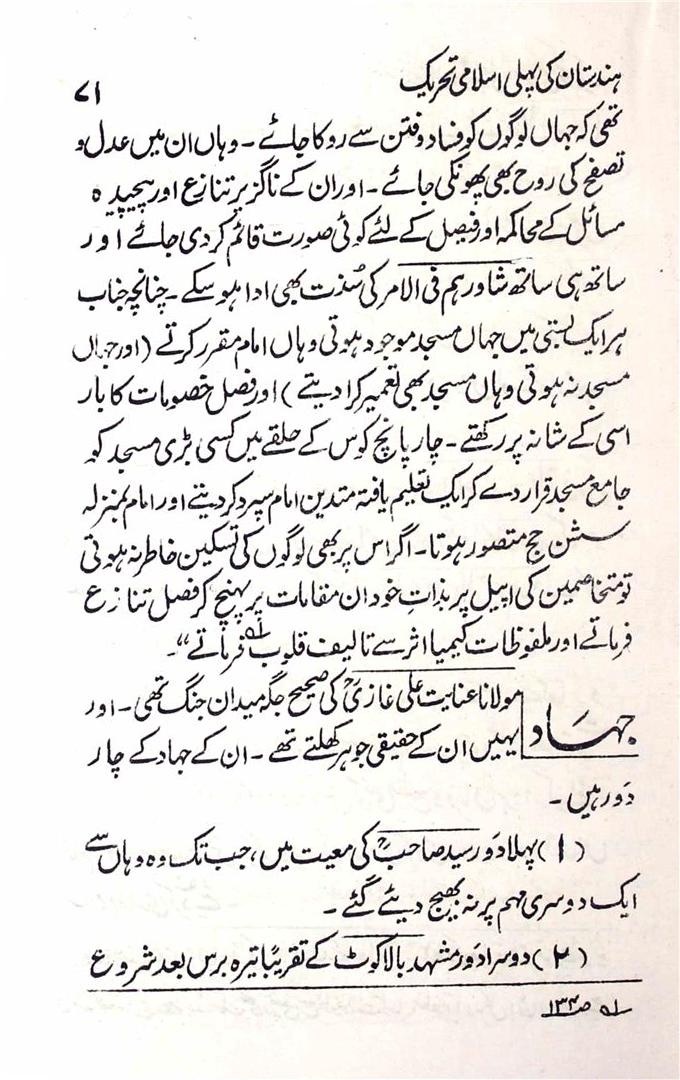 ہندستان کی پہلی اسلامی تحریک
۷۱
تھی کہ جہاں لوگوں کو فساد و فتن سے روکا جائے ۔ وہاں ان میں عدل و
تصفح کی روح بھی پھونکی جائے ۔ اور ان کے ناگزیر تنازع اور پیچیدہ
مسائل کے محاکمہ اور فیصل کے لئے کوئی صورت قائم کر دی جائے اور
ساتھ ہی ساتھ شاورہم فی الامر کی سُنت بھی ادا ہو سکے ۔ چنانچہ جناب
ہر ایک بستی میں جہاں مسجد موجود ہوتی وہاں امام مقرر کرتے (اور جہاں
مسجد نہ ہوتی وہاں مسجد بھی تعمیر کرا دیتے) اور فصل خصومات کا بار
اسی کے شانہ پر رکھتے ۔ چار پانچ کوس کے حلقے میں کسی بڑی مسجد کو
جامع مسجد قرار دے کر ایک تعلیم یافتہ متدین امام سپرد کر دیتے اور امام بمنزلہ
سشن جج متصور ہوتا ۔ اگر اس پر بھی لوگوں کی تسکین خاطر نہ ہوتی
تو متخاصمین کی اپیل پر بذاتِ خود ان مقامات پر پہنچ کر فصل تنازع
فرماتے اور ملفوظات کیمیا اثر سے تالیف قلوب؂۱ فرماتے“ ۔
جہاد
مولانا عنایت علی غازیؒ کی صحیح جگہ میدان جنگ تھی ۔ اور
یہیں ان کے حقیقی جوہر کھلتے تھے ۔ ان کے جہاد کے چار
دَور ہیں ۔
(۱) پہلا دَور سید صاحبؒ کی معیت میں، جب تک وہ وہاں سے
ایک دوسری مہم پر نہ بھیج دیئے گئے ۔
(۲) دوسرا دَور مشہد بالاکوٹ کے تقریبًا تیرہ برس بعد شروع
؂۱ صـ۱۳۴